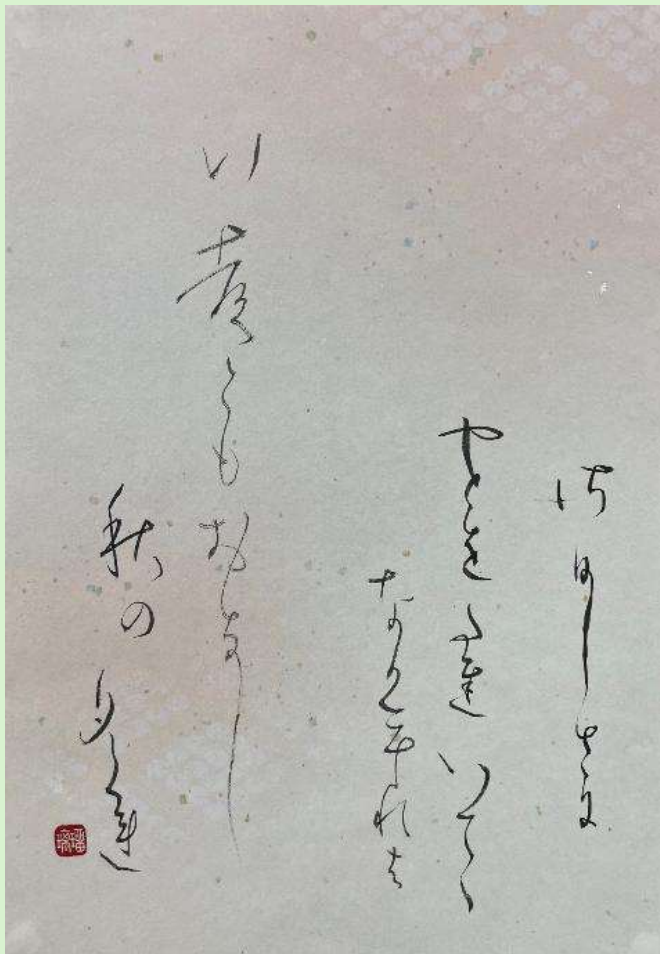 さひしさに
やとをたちいてゝ
なかむれは
いつこもおなし
秋の夕くれ